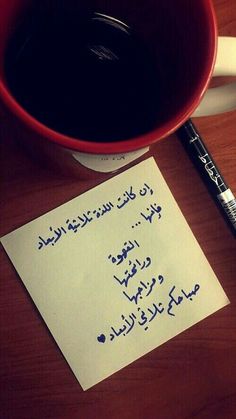 إن كانت اللذة ثلاثية الأبعاد
فإنها ...
القهوة
ورائحتها
ومزاجها
صباحكم ثلاثي الأبعاد ♥